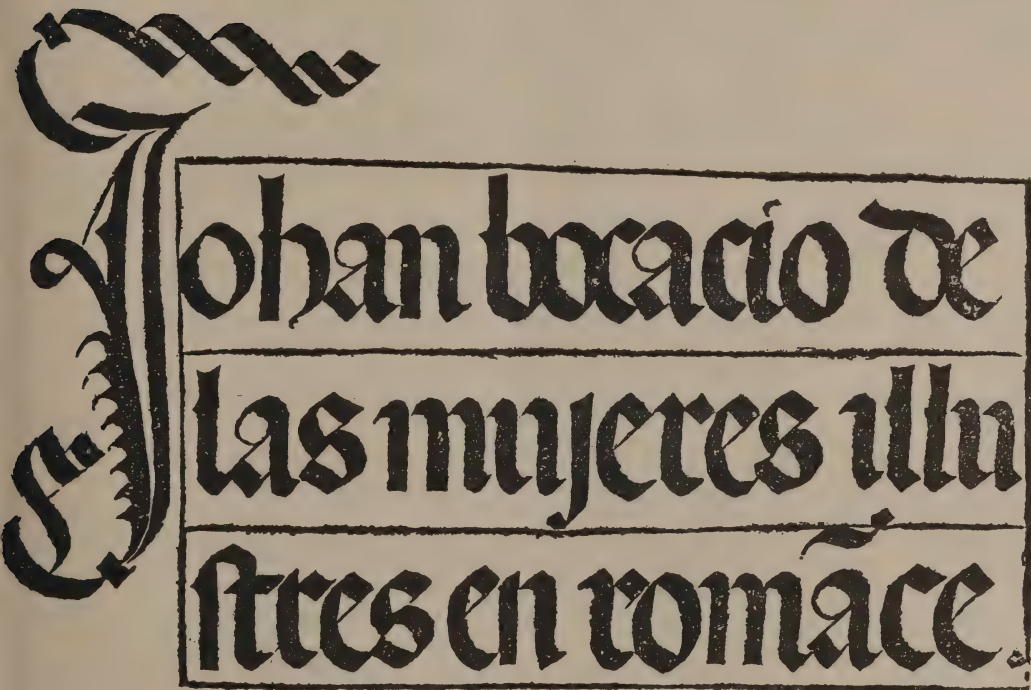 Johan bocacio de
las mujeres illu
stres en romāce.